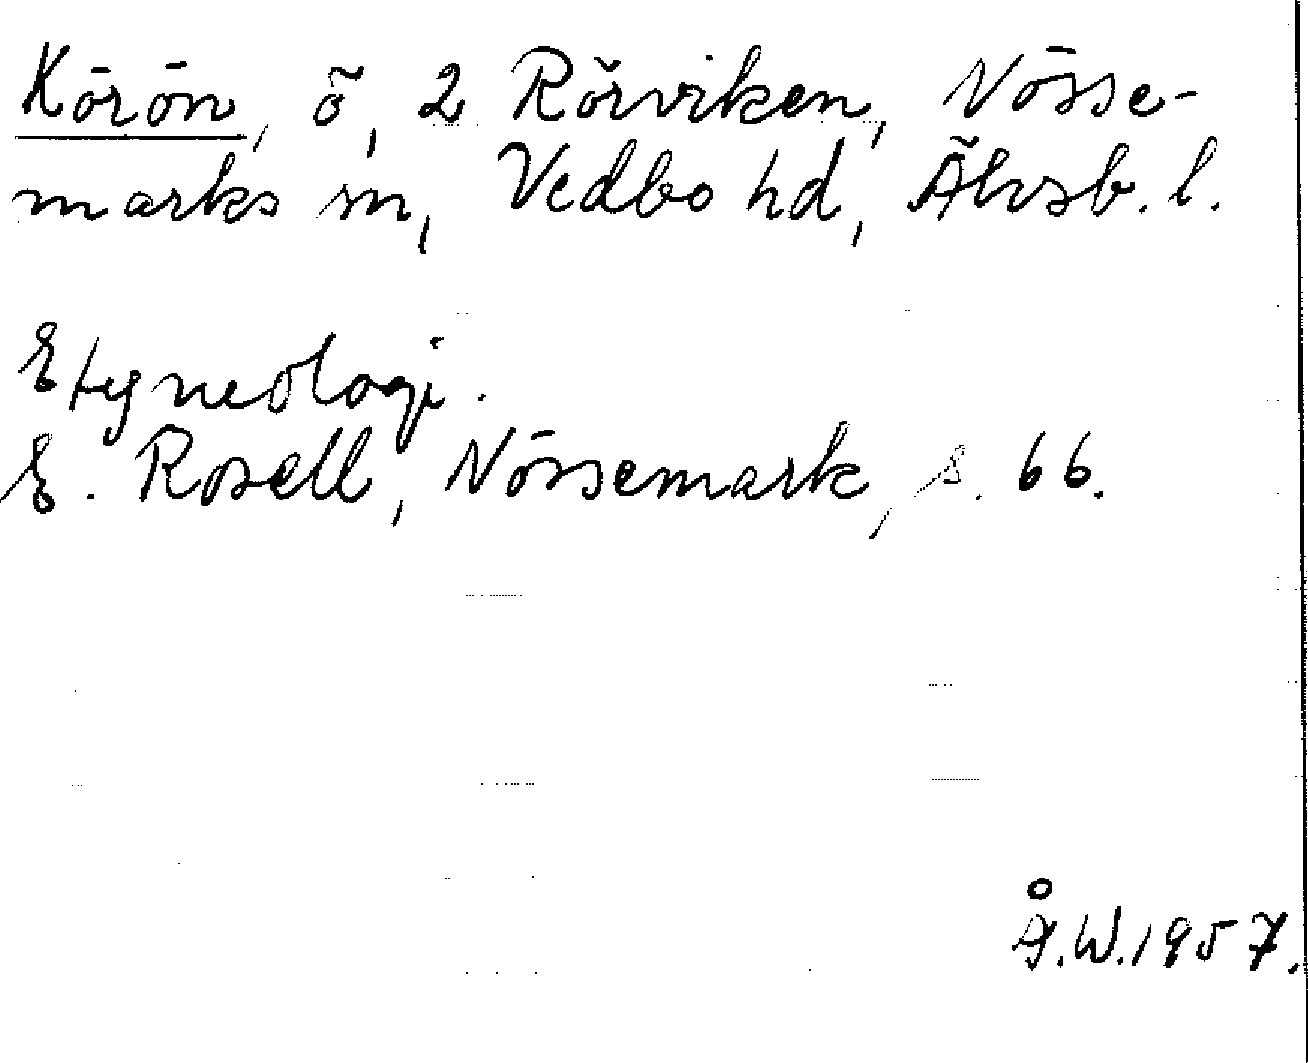 Körön, ö, 2 Rörviken, Nösse-
marks sn, Vedbo hd, Älvsb. l.
Etymologi.
E. Rosell, Nössemark, s. 66.
Å.W. 1957.